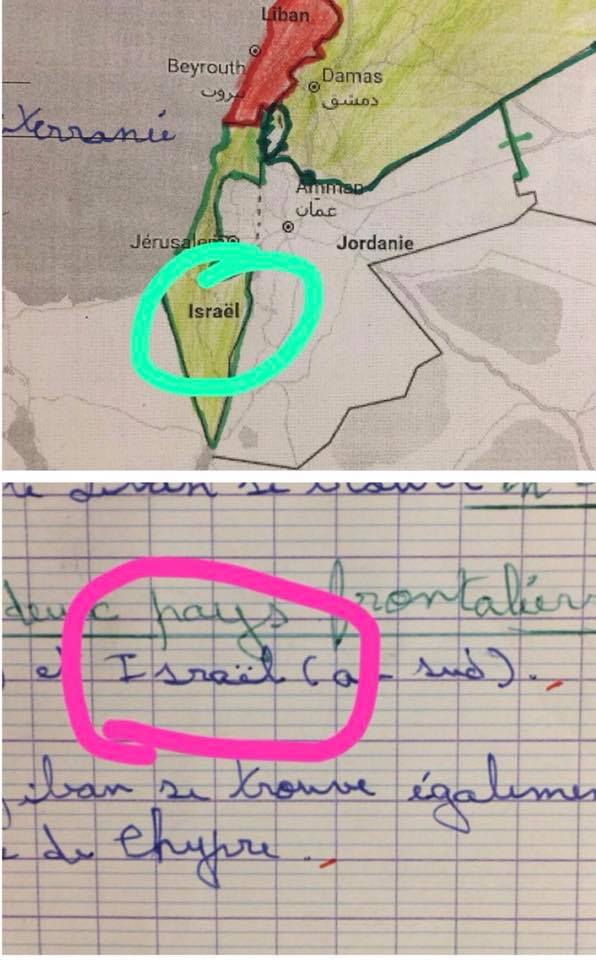 Liban
Beyrouth
بيروت
Damas
دمشق
Amman
عمّان
Jérusalem
Jordanie
Israël
deux pays frontalier
et Israël (au sud).
Liban se trouve égalemen
de Chypre.